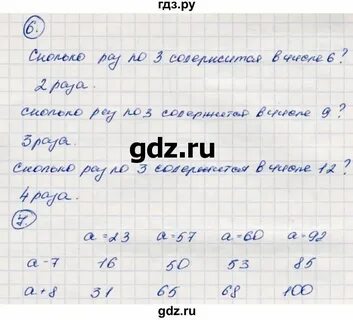 гдз.ру
6.
Сколько раз по 3 содержится в числе 6?
2 раза.
Сколько раз по 3 содержится в числе 9?
3 раза.
Сколько раз по 3 содержится в числе 12?
4 раза.
7.
a=23 a=57 a=60 a=92
a-7 16 50 53 85
a+8 31 65 68 100
gdz.ru
gdz.ru
gdz.ru
gdz.ru